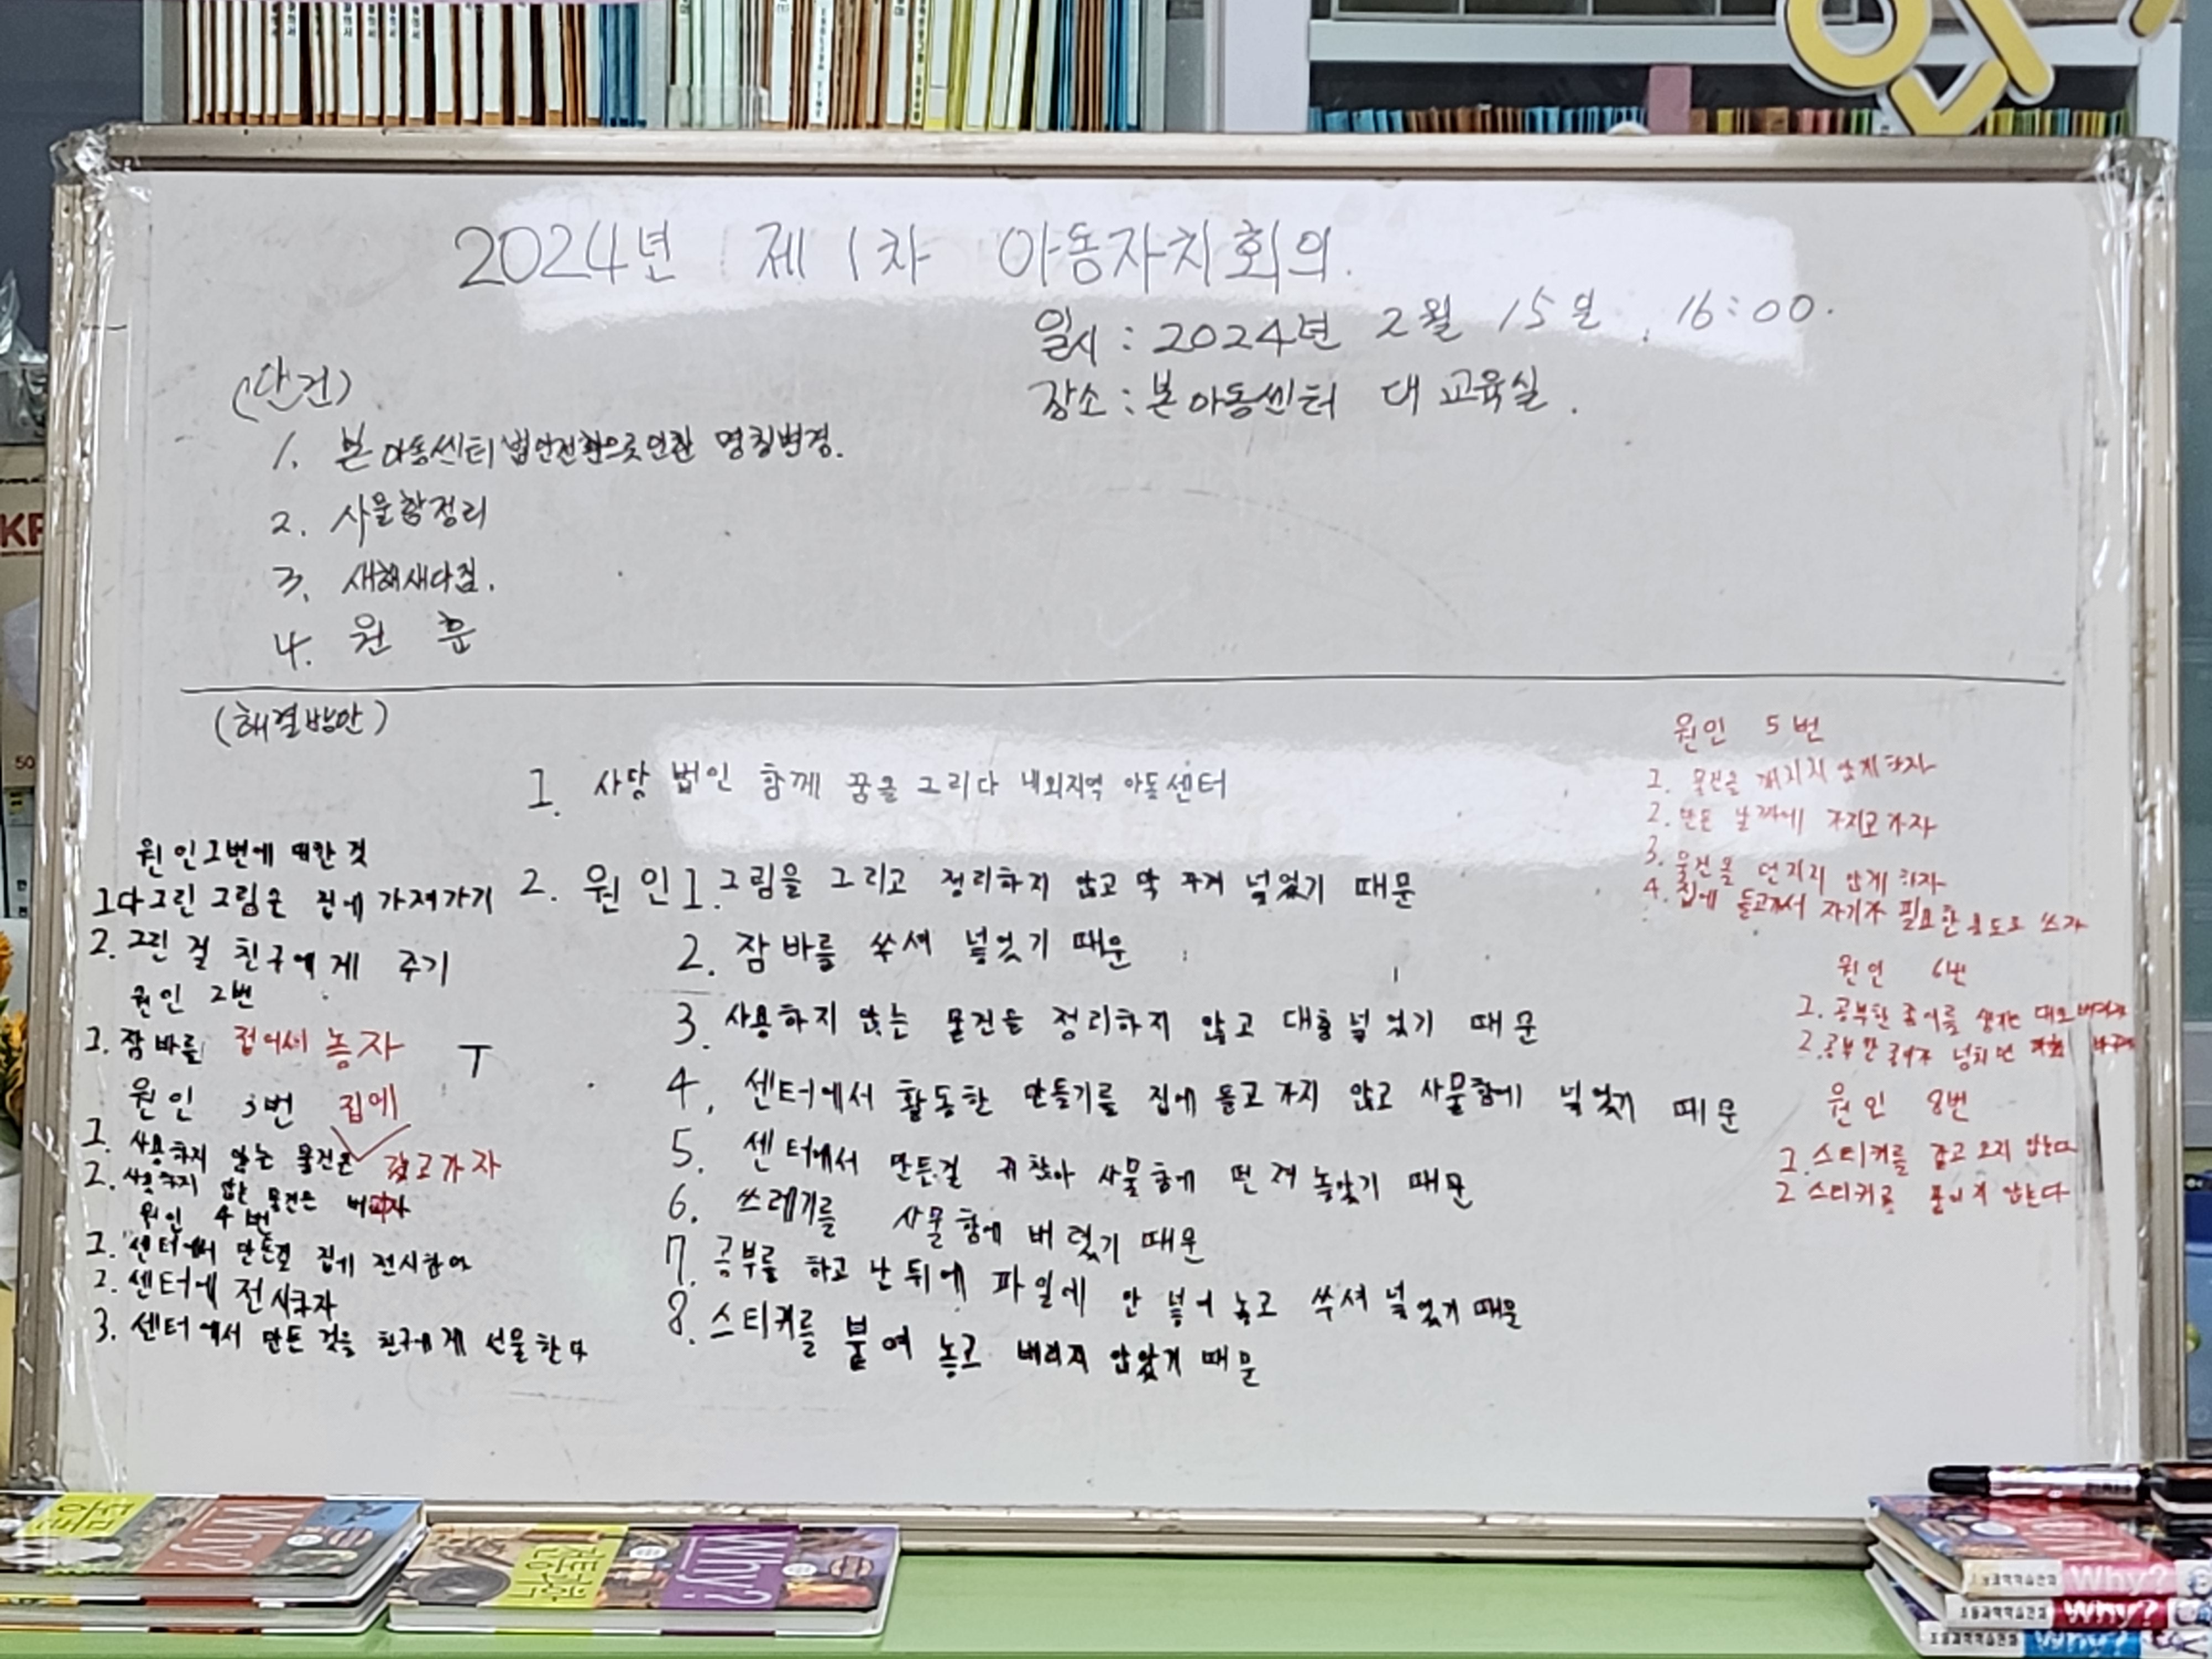 2024년 제 1차 아동자치회의.
일시 : 2024년 2월 15일. 16:00.
장소 : 본아동센터 대교육실.
(안건)
1. 본아동센터 법인전환으로인한 명칭변경.
2. 사물함정리
3. 새해새다짐.
4. 원 훈
(해결방안)
1. 사단 법인 함께 꿈을 그리다 내외지역 아동센터
2. 원인 1. 그림을 그리고 정리하지 않고 막 꾸겨 넣었기 때문
2. 잠바를 쑤셔 넣었기 때문
3. 사용하지 않는 물건을 정리하지 않고 대충 넣었기 때문
4. 센터에서 활동한 만들기를 집에 들고 가지 않고 사물함에 넣었기 때문
5. 센터에서 만든걸 귀찮아 사물함에 던져 놓았기 때문
6. 쓰레기를 사물함에 버렸기 때문
7. 공부를 하고 난 뒤에 파일에 안 넣어 놓고 쑤셔 넣었기 때문
8. 스티커를 붙여 놓고 버리지 않았기 때문
원인 1번에 대한 것
1 다 그린 그림은 집에 가져가기
2. 그린 걸 친구에게 주기
원인 2번
1. 잠바를 접어서 놓자
원인 3번 집에
1. 사용하지 않는 물건은 갖고가자
2. 사용하지 않는 물건은 버리자
원인 4번
1. 센터에서 만든걸 집에
2. 센터에 전시하자
3. 센터에서 만든 것을 친구에게 선물한다
원인 5번
1. 물건을 않게 하자
2. 만든 날짜에 가지고 가자
3. 물건을 던지지 않게 하자
4. 집에 들고가서 자기가 필요한 용도로 쓰자
원인 6번
1. 공부한 종이를
2. 공부한 종이가 넘치면
원인 8번
1. 스티커를 갖고 오지 않는다
2 스티커를 붙이지 않는다
Why?
Why?
Why?
Why?
Why?